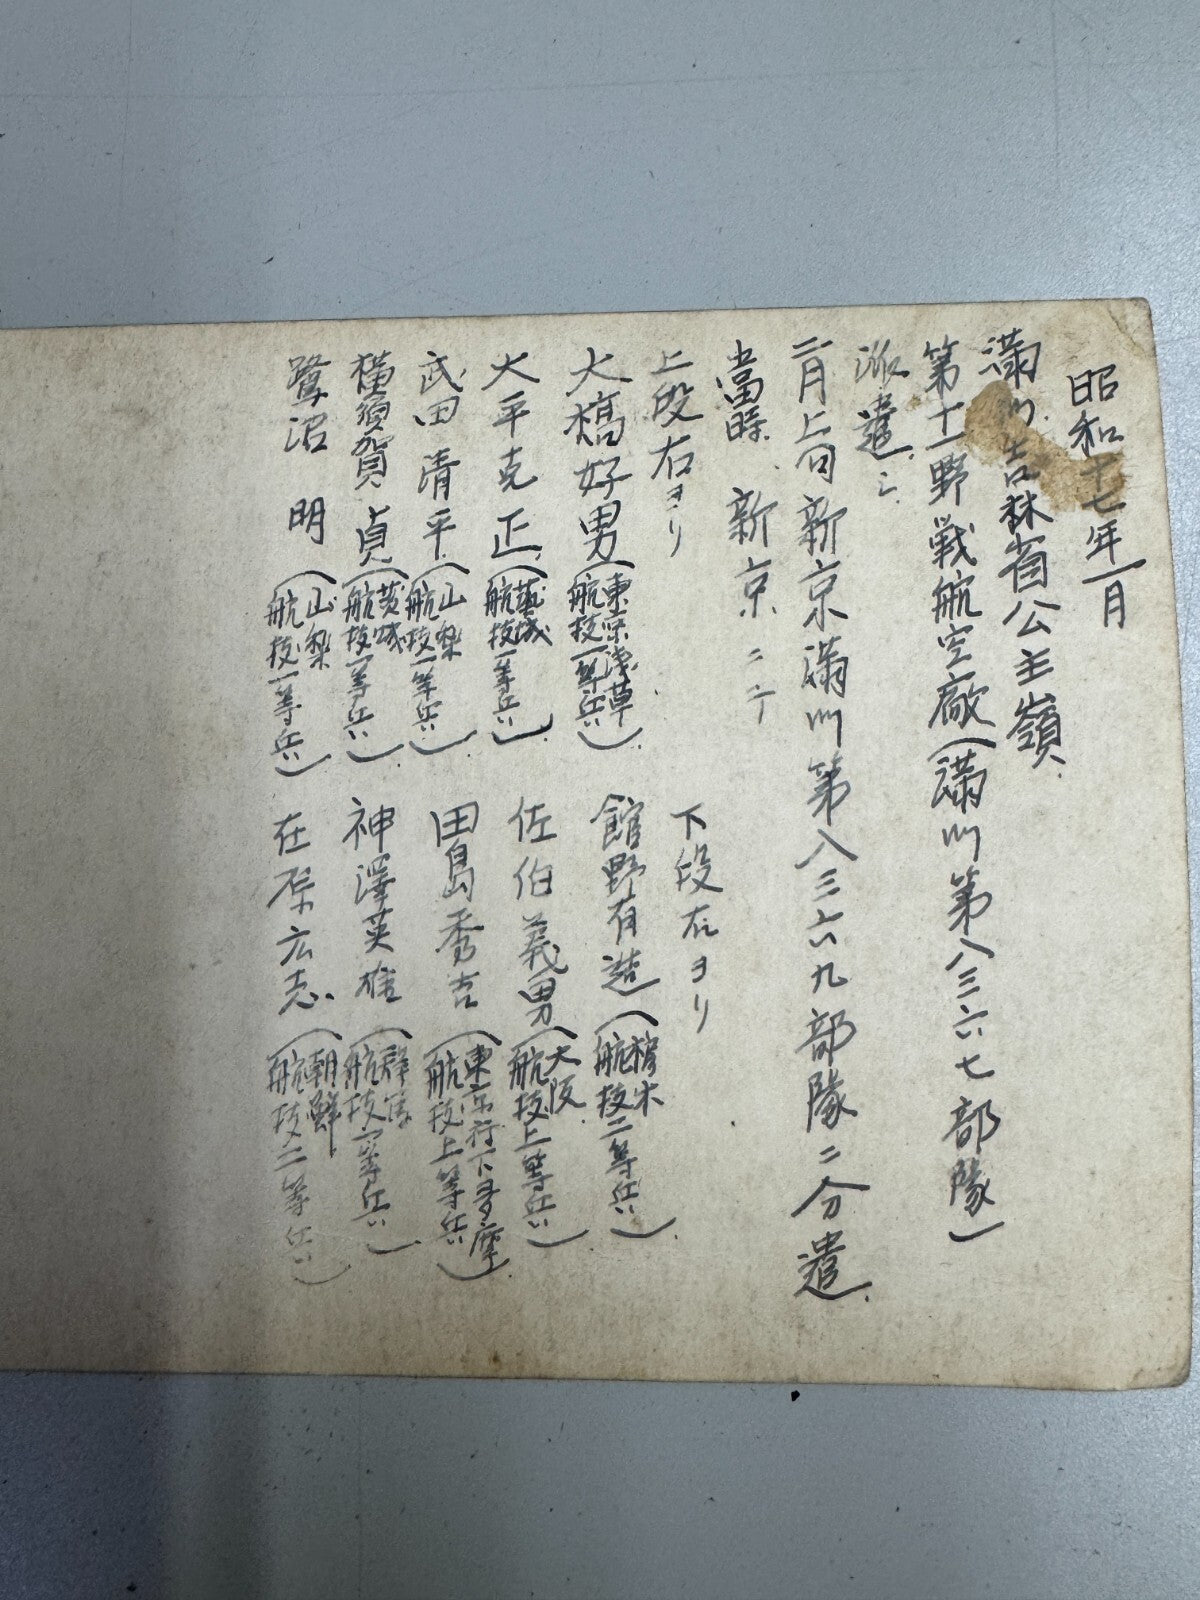 昭和十七年一月
満洲吉林省公主嶺
第十一野戦航空廠(満州第八三六七部隊)
派遣シ
二月上旬新京満州第八三六九部隊ニ分遣
當時 新京ニテ
上段右ヨリ
大橋好男(東京浅草 航技一等兵)
大平克正(茨城 航技一等兵)
武田清平(山梨 航技一等兵)
横須賀貞(茨城 航技一等兵)
鷺沼 明(山梨 航技一等兵)
下段右ヨリ
館野有造(栃木 航技二等兵)
佐伯義男(大阪 航技上等兵)
田島秀吉(東京府下多摩 航技上等兵)
神澤英雄(群馬 航技一等兵)
在原広志(朝鮮 航技二等兵)